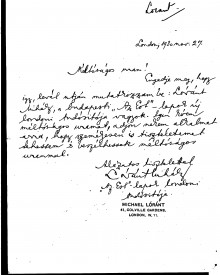 Lóránt
London, 1930 nov. 27.
Méltóságos uram!
Engedje meg, hogy
így, levél útján mutatkozzam be: Lóránt
Mihály, a budapesti "Az Est" lapok új
londoni tudósítója vagyok. Igen kérem
méltóságos uramat, adjon nekem alkalmat
arra, hogy személyesen is tiszteletemet
tehessem s beszélhessek méltóságos
urammal.
Alázatos tisztelettel
Lóránt Mihály
"Az Est" lapok londoni
tudósítója.
MICHAEL LÓRÁNT
41, COLVILLE GARDENS,
LONDON, W. 11.